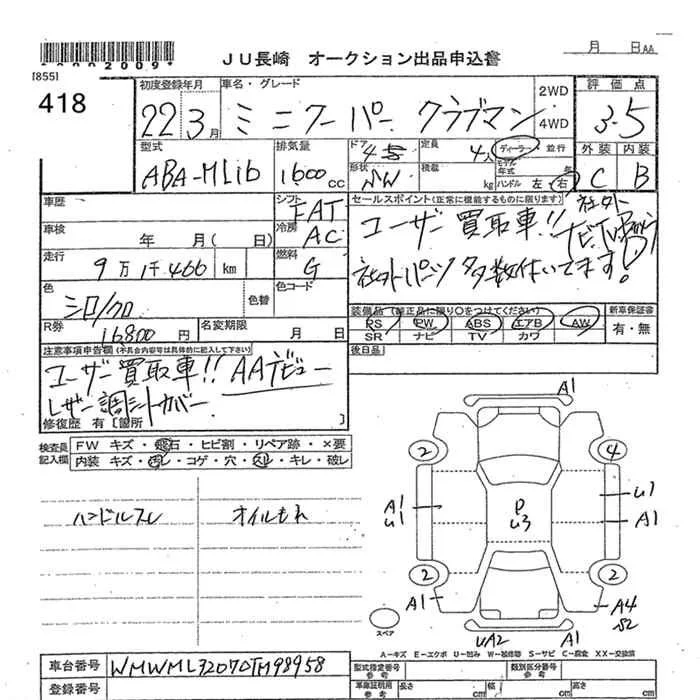 *00002009*
JU長崎 オークション出品申込書
月 日AA
[855]
418
初度登録年月
22 3月
車名・グレード
ミニクーパー クラブマン
2WD
4WD
評価点
3.5
型式
ABA-MLIb
排気量
1600cc
ドア
45
定員
4人
ディーラー 並行
モデル年式 年
形状
SW
積載
kg
ハンドル 左・右
外装 内装
C B
車歴
シフト
FAT
車検
年 月( 日)
冷房
AC
走行
9万1千466 km
燃料
G
色
シロ/クロ
色替
色コード
R券
16800円
名変期限
月 日
セールスポイント(正常に機能するものに限ります)
ユーザー買取車!! 社外ナビTV
社外パーツ多数付いてます!
装備品(純正品に限り○をつけてください)
PS PW ABS エアB AW
SR ナビ TV カワ
新車保証書
有・無
後日品
注意事項申告欄(不具合内容等は具体的に記入して下さい)
ユーザー買取車!! AAデビュー
レザー調シートカバー
修復歴 有[箇所 ]
検査員記入欄
FW キズ・飛石・ヒビ割・リペア跡・×要
内装 キズ・汚レ・コゲ・穴・スレ・キレ・破レ
ハンドルスレ
オイルもれ
A1
2 4
A1
U1
P
U3
U1
A1
2 2
A1
A4
S2
スペア
UA2
A1
A-キズ E-エクボ U-凹み W-補修跡 S-サビ C-腐食 XX-交換済
車台番号
WMWML32070TM98958
登録番号
型式指定番号
参考
類別区分番号
参考
車庫証明用
参考
長さ cm
幅 cm
高さ cm